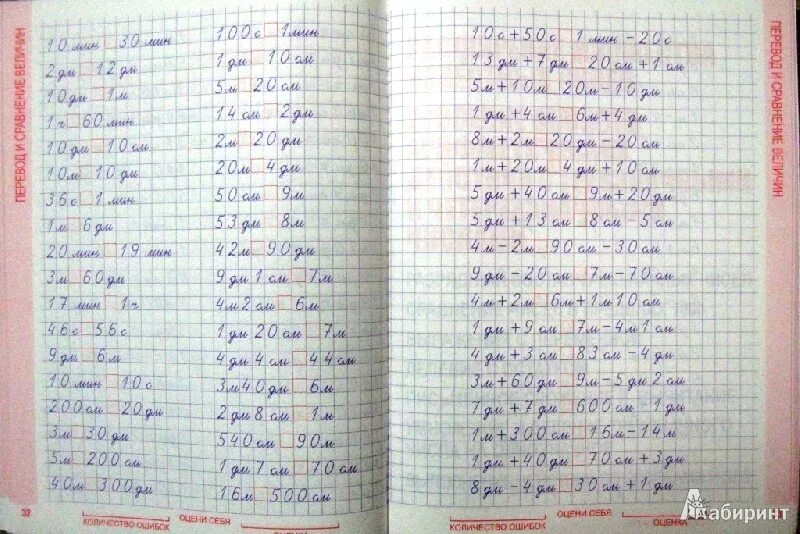 ПЕРЕВОД И СРАВНЕНИЕ ВЕЛИЧИН
10 мин □ 30 мин
2 дм □ 12 дм
10 дм □ 1 м
1 ч □ 60 мин
10 дм □ 10 см
10 м □ 10 дм
36 с □ 1 мин
1 м □ 6 дм
20 мин □ 19 мин
3 м □ 60 дм
17 мин □ 1 ч
46 с □ 56 с
9 дм □ 6 м
10 мин □ 10 с
200 см □ 20 дм
3 м □ 30 дм
5 м □ 200 см
40 м □ 300 дм
100 с □ 1 мин
1 дм □ 10 см
5 м □ 20 см
14 см □ 2 дм
2 м □ 20 дм
20 м □ 4 дм
50 см □ 9 м
53 дм □ 8 м
42 м □ 90 дм
9 дм 1 см □ 7 м
4 м 2 см □ 6 м
1 дм 20 см □ 7 м
4 дм 4 см □ 44 см
3 м 40 дм □ 6 м
2 дм 8 см □ 1 м
540 см □ 90 м
1 дм 7 см □ 70 см
16 м □ 500 см
32
КОЛИЧЕСТВО ОШИБОК
ОЦЕНИ СЕБЯ
ОЦЕНКА
10 с + 50 с □ 1 мин − 20 с
13 дм + 7 дм □ 20 см + 1 см
5 м + 10 м □ 20 м − 10 дм
1 дм + 4 см □ 6 м + 4 дм
8 м + 2 м □ 20 дм − 20 см
1 м + 20 м □ 4 дм + 10 см
5 дм + 40 см □ 9 м + 20 дм
5 дм + 13 см □ 8 см − 5 см
4 м − 2 м □ 90 см − 30 см
9 дм − 20 см □ 7 м − 70 см
4 м + 2 м □ 6 м + 1 м 10 см
1 дм + 9 см □ 7 м − 4 м 1 см
4 дм + 3 см □ 83 см − 4 дм
3 м + 60 дм □ 9 м − 5 дм 2 см
7 дм + 7 дм □ 600 см − 1 дм
1 м + 300 см □ 16 м − 14 м
1 дм + 40 дм □ 70 см + 3 дм
8 дм − 4 дм □ 30 см + 1 дм
КОЛИЧЕСТВО ОШИБОК
ОЦЕНИ СЕБЯ
ОЦЕНКА
ПЕРЕВОД И СРАВНЕНИЕ ВЕЛИЧИН
Лабиринт